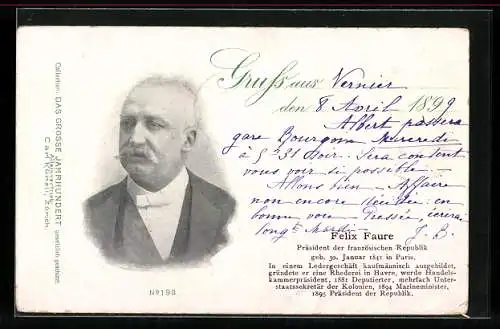 Gruss aus Vernier
den 8 Avril 1899
Albert passera
gare Bourgoin Mercredi
à 5h31 soir. Sera content
vous voir si possible —
Allons bien — Affaire
non encore décidée: en
bonne voie. Pressée, écrirai
longt Mardi J. B.
Felix Faure
Präsident der französischen Republik
geb. 30. Januar 1841 in Paris.
In einem Ledergeschäft kaufmännisch ausgebildet,
gründete er eine Rhederei in Havre, wurde Handels-
kammerpräsident, 1881 Deputierter, mehrfach Unter-
staatssekretär der Kolonien, 1894 Marineminister,
1895 Präsident der Republik.
Collection: DAS GROSSE JAHRHUNDERT gesetzlich geschützt
Carl Künzli, Zürich.
No 198